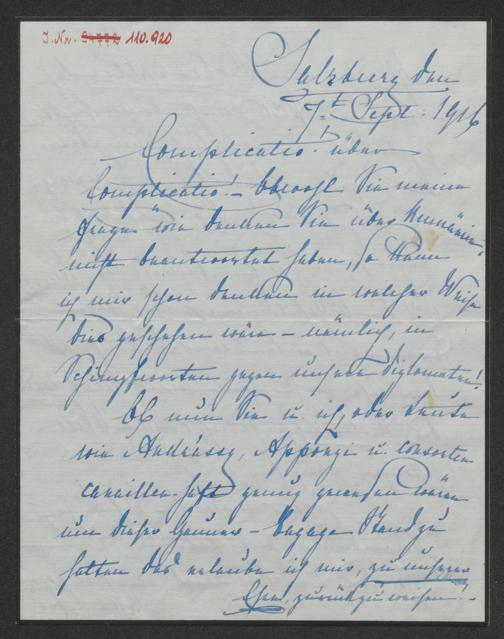 J. Nr. 110.920
Salzburg den
7t Sept. 1916
Complicatio über
Complicatio! – Obwohl Sie meine
Frage wie denken Sie über Rumänien,
nicht beantwortet haben, so kann
ich mir schon denken in welcher Weise
dies geschehen wäre – nämlich, in
Schimpfworten gegen unsere Diplomaten!
Ob nun Sie u. ich, oder Leute
wie Andrássy, Apponyi u. consorten
canaillenhaft genug gewesen wären
um dieser Gauner-Bagage Stand zu
halten das erlaube ich mir, zu unserer
Ehre, zurückzuweisen!